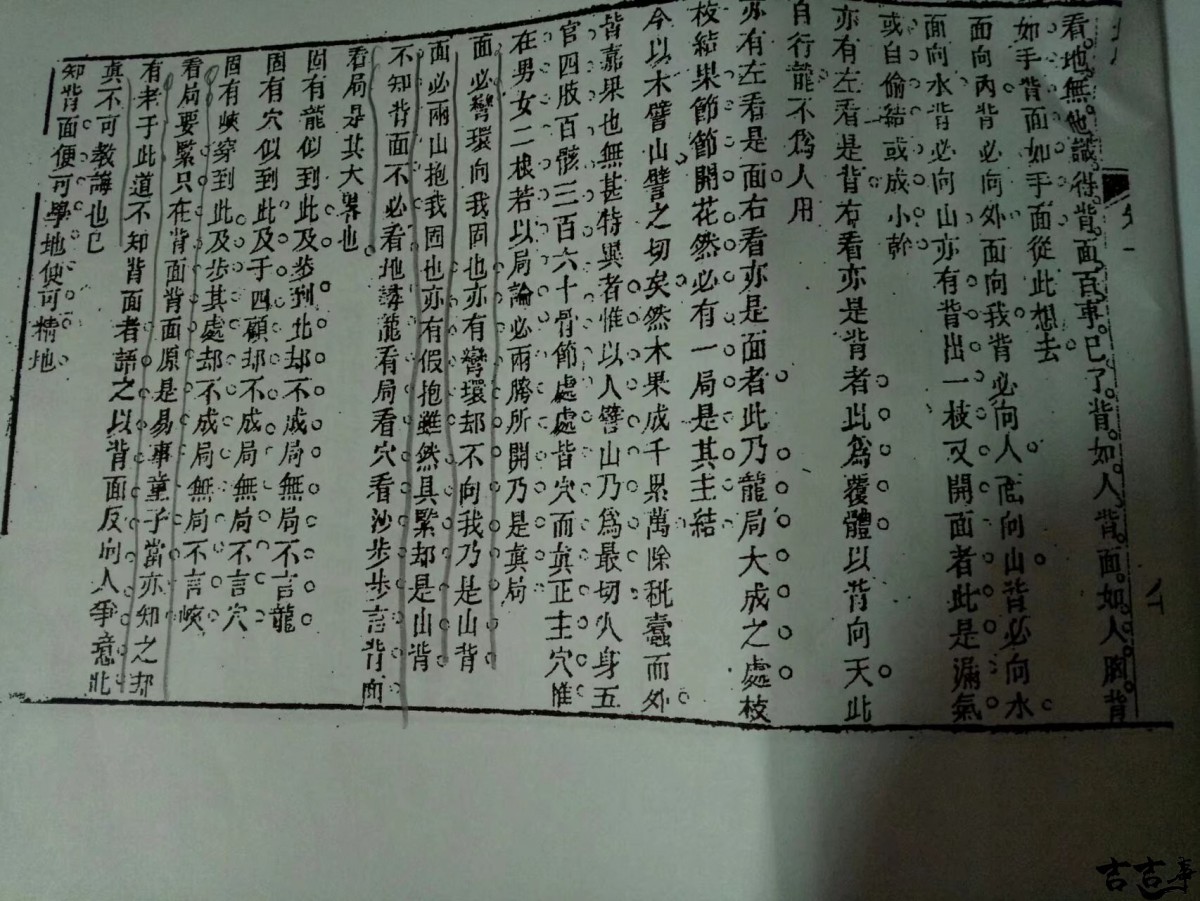 看地無他識得背面百事已了背如人背面如人胸背
如手背面如手面從此想去
面向內背必向外面向我背必向人面向山背必向水
面向水背必向山亦有背出一枝又開面者此是漏氣
或自偷結或成小幹
亦有左看是背右看亦是背者此為覆體以背向天此
自行龍不為人用
亦有左看是面右看亦是面者此乃龍局大成之處枝
枝結果節節開花然必有一局是其主結
今以木譬山譬之切矣然木果成千累萬除秕蠹而外
皆嘉果也無甚特異者惟以人譬山乃為最切人身五
官四肢百骸三百六十骨節處處皆穴而真正主穴惟
在男女二根若以局論必兩胯所開乃是真局
面必彎環向我固也亦有彎環却不向我乃是山背
面必兩山抱我固也亦有假抱雖然具緊却是山背
不知背面不必看地講龍看局看穴看沙步步言背面
看局是其大畧也
固有龍似到此及步到北却不成局無局不言龍
固有穴似到此及于四顧却不成局無局不言穴
固有峽穿到此及步其處却不成局無局不言峽
看局要緊只在背面背面原是易事童子當亦知之却
有老于此道不知背面者語之以背面反向人爭意此
真不可教誨也已
知背面便可學地使可精地
吉吉亭